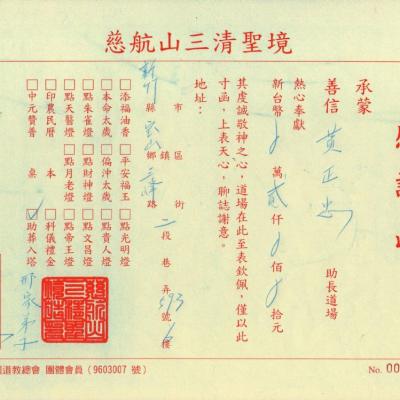 慈航山三清聖境
承蒙
善信 黃正忠 助長道場
熱心奉獻
新台幣 萬貳仟 佰 拾元
其虔誠敬神之心，道場在此至表欽佩，僅以此
寸函，上表天心，聊誌謝意。
地址：
新竹縣市 寶山鄉鎮區 三峰路街 二段 巷 弄 593號 6樓
□添福油香 □平安福玉 □點光明燈
□本命太歲 □偏沖太歲 □點貴人燈
□點朱雀燈 □點財神燈 □點文昌燈
□點天醫燈 □點月老燈 □點帝王燈
□印農民曆 本 □科儀禮金
□中元贊普 桌 □助葬入塔
邢家弟子
道教總會 團體會員 (9603007 號)
No. 00